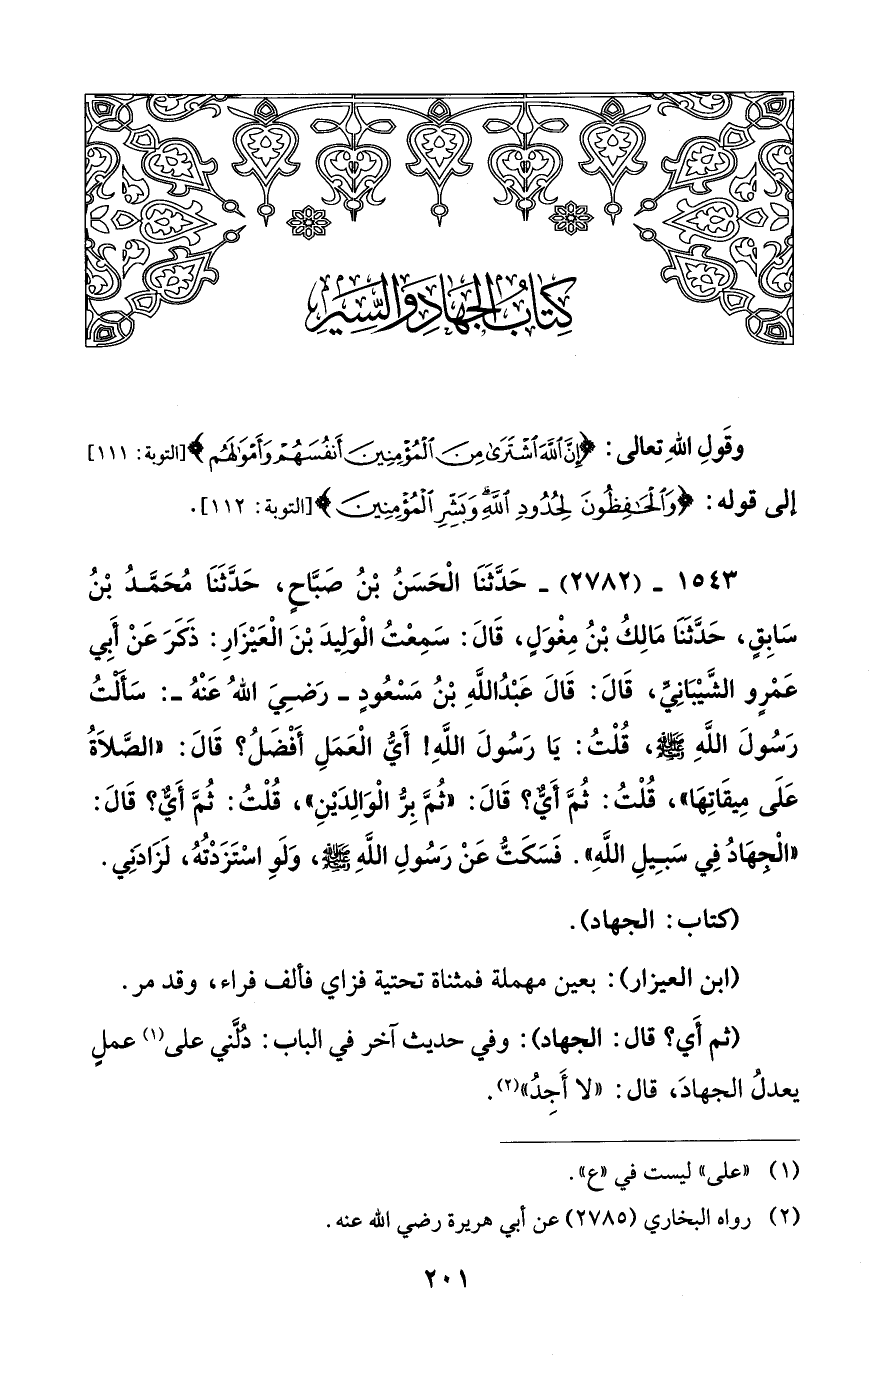 كِتَابُ الجِهَادِ وَالسِّيَرِ
وقَولِ اللهِ تعالى: ﴿إِنَّ ٱللَّهَ ٱشْتَرَىٰ مِنَ ٱلْمُؤْمِنِينَ أَنفُسَهُمْ وَأَمْوَالَهُم﴾ [التوبة: ١١١]
إلى قوله: ﴿وَٱلْحَٰفِظُونَ لِحُدُودِ ٱللَّهِۗ وَبَشِّرِ ٱلْمُؤْمِنِينَ﴾ [التوبة: ١١٢].
١٥٤٣ ـ (٢٧٨٢) ـ حَدَّثَنَا الْحَسَنُ بْنُ صَبَّاحٍ، حَدَّثَنَا مُحَمَّدُ بْنُ
سَابِقٍ، حَدَّثَنَا مَالِكُ بْنُ مِغْوَلٍ، قَالَ: سَمِعْتُ الْوَلِيدَ بْنَ الْعَيْزَارِ: ذَكَرَ عَنْ أَبِي
عَمْرٍو الشَّيْبَانِيِّ، قَالَ: قَالَ عَبْدُاللَّهِ بْنُ مَسْعُودٍ ـ رَضِيَ اللهُ عَنْهُ ـ: سَأَلْتُ
رَسُولَ اللَّهِ ﷺ، قُلْتُ: يَا رَسُولَ اللَّهِ! أَيُّ الْعَمَلِ أَفْضَلُ؟ قَالَ: «الصَّلاَةُ
عَلَى مِيقَاتِهَا»، قُلْتُ: ثُمَّ أَيٌّ؟ قَالَ: «ثُمَّ بِرُّ الْوَالِدَيْنِ»، قُلْتُ: ثُمَّ أَيٌّ؟ قَالَ:
«الْجِهَادُ فِي سَبِيلِ اللَّهِ». فَسَكَتُّ عَنْ رَسُولِ اللَّهِ ﷺ، وَلَوِ اسْتَزَدْتُهُ، لَزَادَنِي.
(كتاب: الجهاد).
(ابن العيزار): بعين مهملة فمثناة تحتية فزاي فألف فراء، وقد مر.
(ثم أَي؟ قال: الجهاد): وفي حديث آخر في الباب: دُلَّني على(١) عملٍ
يعدلُ الجهادَ، قال: «لا أَجِدُ»(٢).
(١) «على» ليست في «ع».
(٢) رواه البخاري (٢٧٨٥) عن أبي هريرة رضي الله عنه.
٢٠١